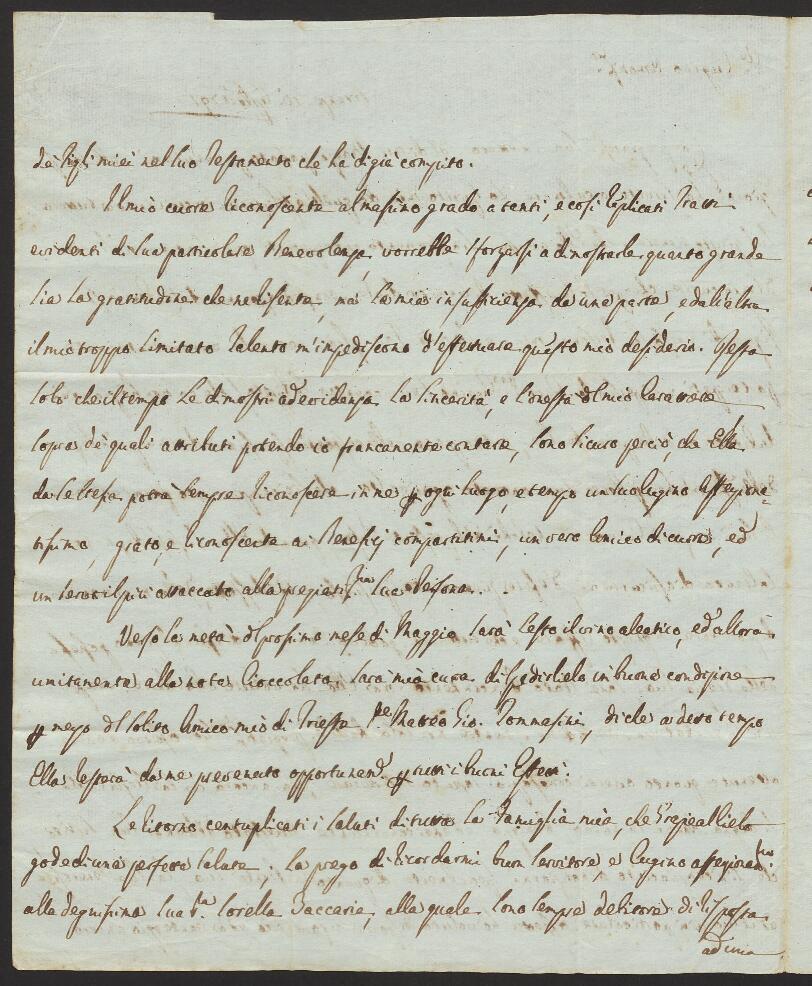 de Figli miei nel suo Testamento che ha digià compito.
Il mio cuore riconoscente al massimo grado a tanti, e così replicati Tratti
evidenti di sua particolare Benevolenza, vorrebbe sforzarsi a dimostrarle quanto grande
sia la gratitudine che ne risente, mà la mia insufficienza da una parte, e dall'altra
il mio troppo limitato Talento m'impediscono d'effettuare questo mio desiderio. Resta
solo che il tempo Le dimostri ad evidenza la sincerità, e l'onestà del mio Carattere
sopra de quali attributi potendo io francamente contare, sono sicuro perciò, che Ella
da se stessa potrà sempre riconoscere in me p ogni luogo, e tempo un suo Cugino Affezziona=
tissimo, grato, e riconoscente ai Beneficj compartitimi, un vero Amico di cuore, ed
un servo il più attaccato alla pregiatis.ma sua Persona.
Verso la metà del prossimo mese di Maggio sarà lesto il vino aleatico, ed allora
unitamente alla nota Cioccolata, sarà mia cura di spedirlielo in buona condizione
p mezzo del solito Amico mio di Trieste Matteo Gio. Tommasini, di che a detto tempo
Ella resterà da me prevenuto opportunam.e p tutti i buoni Effetti.
Le ritorno centuplicati i saluti di tutta la Famiglia mia, che grazie al Cielo
gode di una perfetta salute; la prego di ricordarmi buon servitore, e Cugino affezionat.mo
alla degnissima sua S.ra Sorella Zaccaria, alla quale sono sempre debitore di risposta
ad una